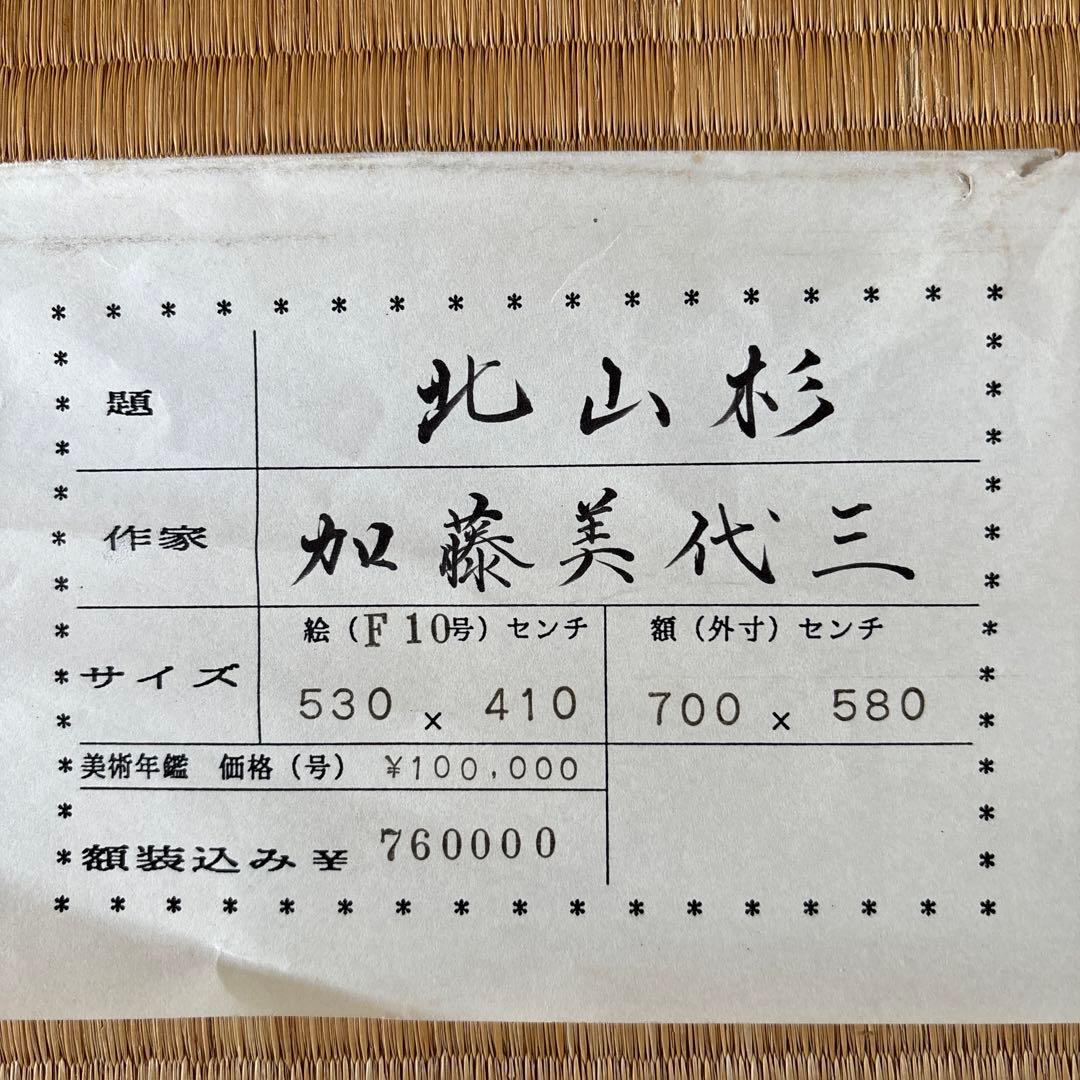 * * * * * * * * * * * * * * * * *
題 北山杉
作家 加藤美代三
サイズ 絵（F10号）センチ 額（外寸）センチ
530 x 410 700 x 580
美術年鑑 価格（号） ¥100,000
額装込み ¥ 760000
* * * * * * * * * * * * * * * * *